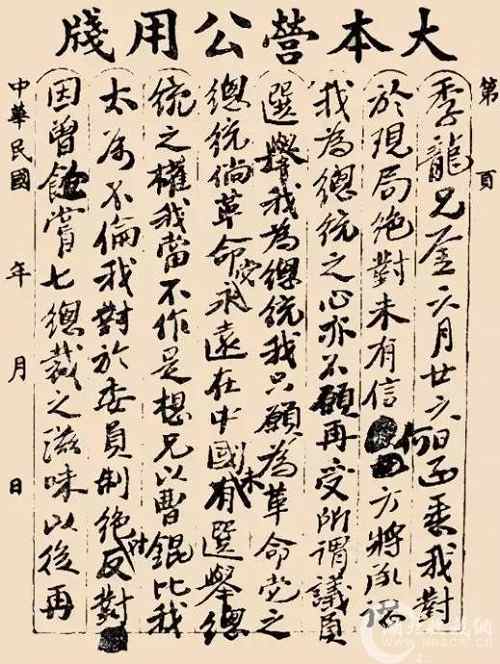 大本營公用牋
第 頁
季龍兄鑒六月廿六日函悉我對
於現局絕對未有信何方將承認
我為總統之心亦不願再受所謂議員
選舉我為總統我只願為革命党之
總統倘革命党永遠在中國未有選舉總
統之權我當不作是想兄以曹錕比我
太為不倫我對於委員制絕反對
因曾飽嘗七總裁之滋味以後再
中華民國 年 月 日